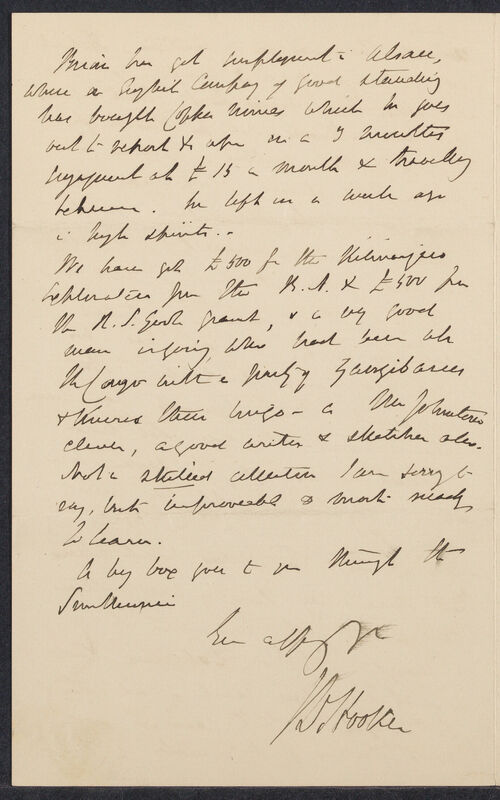 Brian has got employment in Alsace,
where an English Company of good standing
has bought Copper mines which he goes
out to report & upon on a 3 months
engagement at £15 a month & travelling
between. he left us a week ago
in high spirits..
We have got £500 for the Kilimanjaro
exploration from the B.A. & £500 from
the R.S. Govt. grant, & a very good
man is going, who had been up
the Congo with a party of Zanzibarees
& knows their lingo – a Mr Johnston
clever, a good writer & sketcher also.
Not a skilled collector I am sorry to
say, but improveable & most ready
to learn.
A big box goes to you through the
Smithsonian
Ever affy yr
J D Hooker